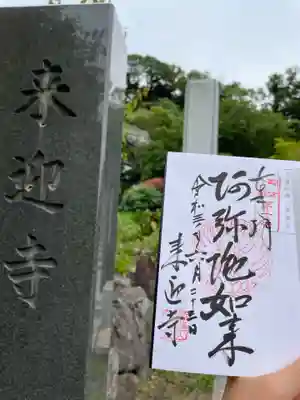 来迎寺
奉拝
阿弥陀如来
令和三年六月二十三日
来迎寺